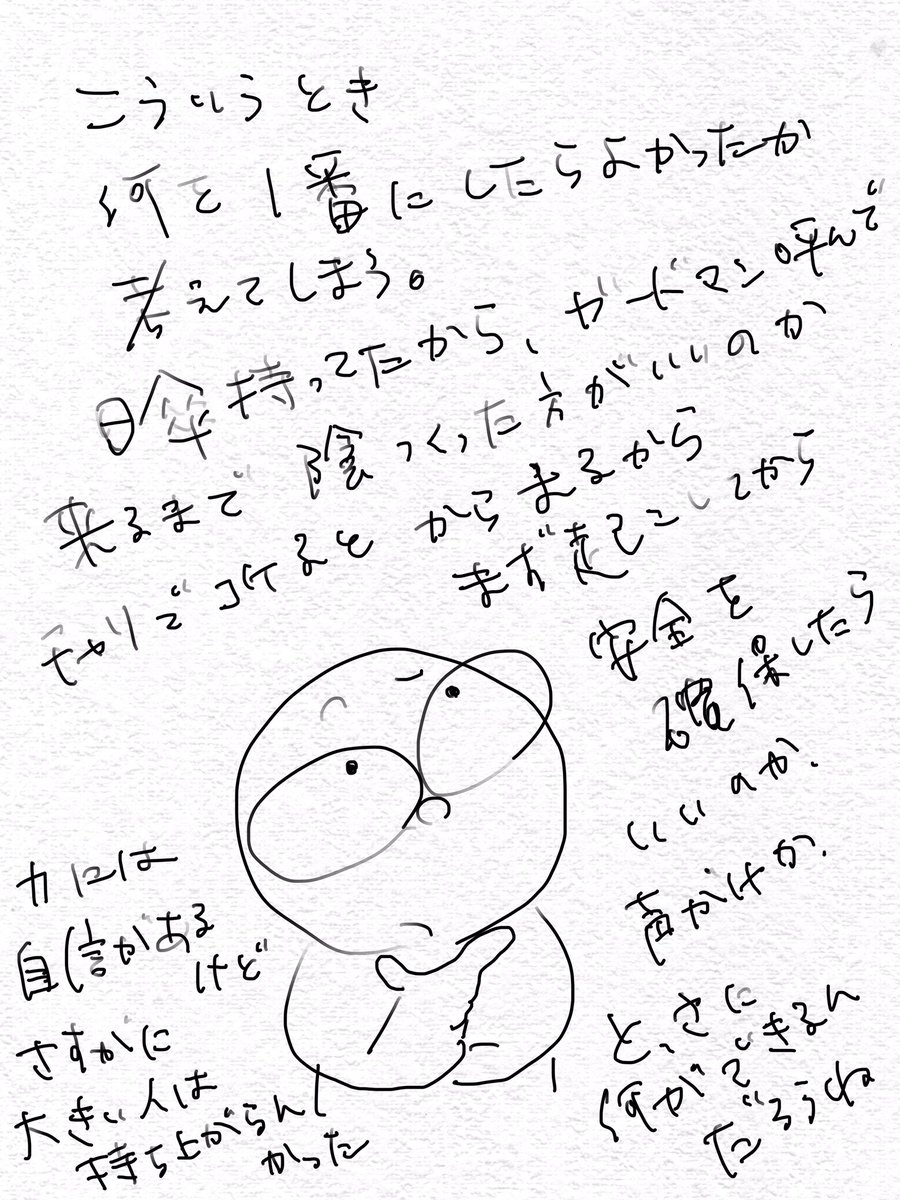 こういうとき
何を1番にしたらよかったか
考えてしまう。
日傘持ってたから、ガードマン呼んで
来るまで陰つくった方がいいのか
チャリでコケるとからまるから
まず起こしてから
安全を
確保したら
いいのか、
声がけか、
とっさに
何ができるん
だろうね
力には
自信がある
けど
さすがに
大きい人は
持ち上がらんし
かった